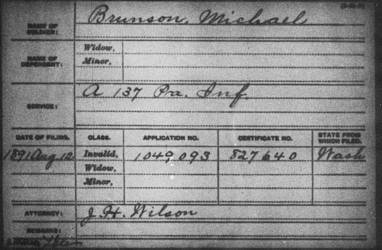 NAME OF SOLDIER: Brunson, Michael
NAME OF DEPENDENT: Widow,
Minor,
SERVICE: A 137 Pa. Inf.
DATE OF FILING. CLASS. APPLICATION NO. CERTIFICATE NO. STATE FROM WHICH FILED.
1891 Aug 12 Invalid, 1049,093 827640 Wash
Widow,
Minor,
ATTORNEY: J. H. Wilson
REMARKS: